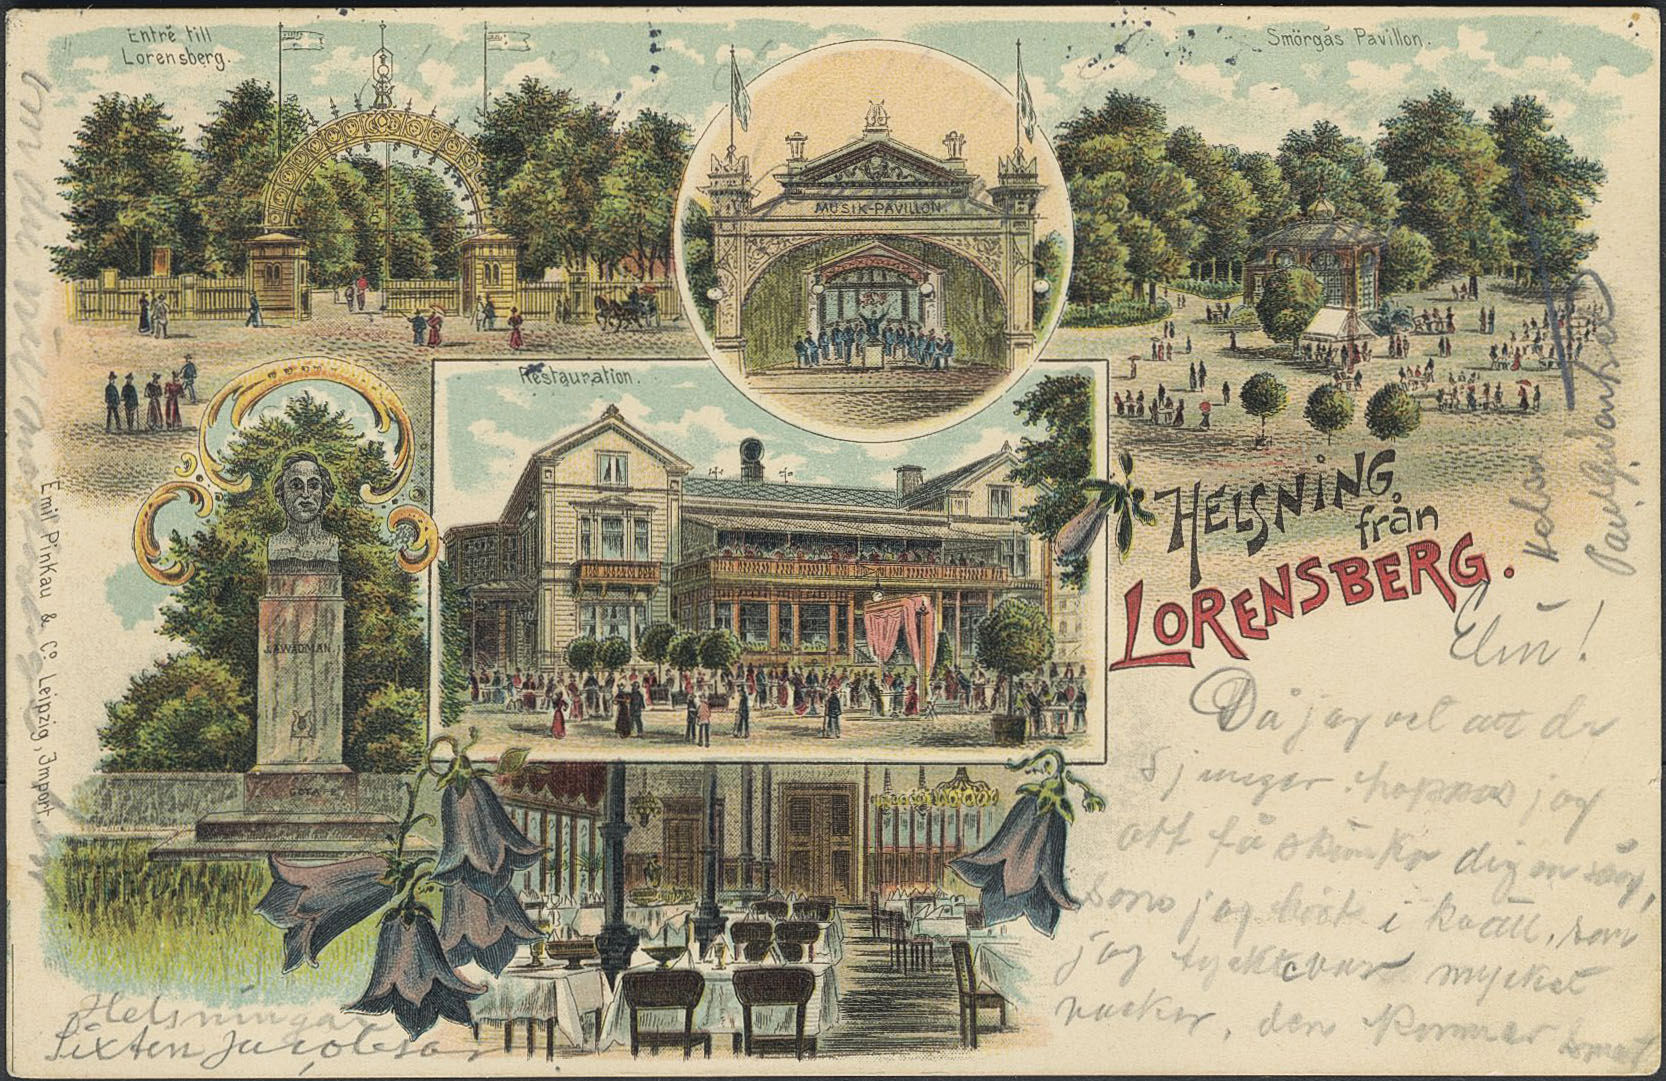 Entré till
Lorensberg.
MUSIK-PAVILLON
Smörgås Pavillon.
Restauration.
J.A.WADMAN.
GÖTA P
HELSNING
från
LORENSBERG.
Emil Pinkau & Co. Leipzig, Import
Elin!
Då jag vet att du
sjunger hoppas jag
att få skänka dig en sång,
som jag hört i kväll, som
jag tyckte var mycket
vacker, den kommer
om du vill
Helsningar
Sixten Jacobson